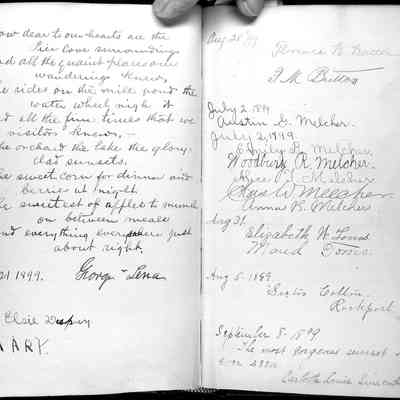 ow dear to our hearts are the
Pier Cove surroundings
nd all the quaint places our
wanderings knew,
he sides on the mill pond the
water wheel nigh it
nd all the fun times that we
visitors knew, —
he orchard the lake the glory-
clad sunsets.
he sweet corn for dinner and
berries at night.
he sweetest of apples to munch
on between meals
nd everything everywhere just
about right.
21 1899. George - Lena
Elsie
MARY.
Aug 28 '99
Florence N.
F. M. Britton
July 2 1899
Austin G. Melcher.
July 2, 1899.
Emily B. Melcher.
Woodbury R. Melcher.
Melcher
Chas W Melcher.
Annas B. Melcher
Aug 31.
Elizabeth W. Torres.
Maud Torres.
Aug 5. 1899
Cotton.
Rockport
September 8. 1899
The most gorgeous sunset
ever seen
Carlotta Louise